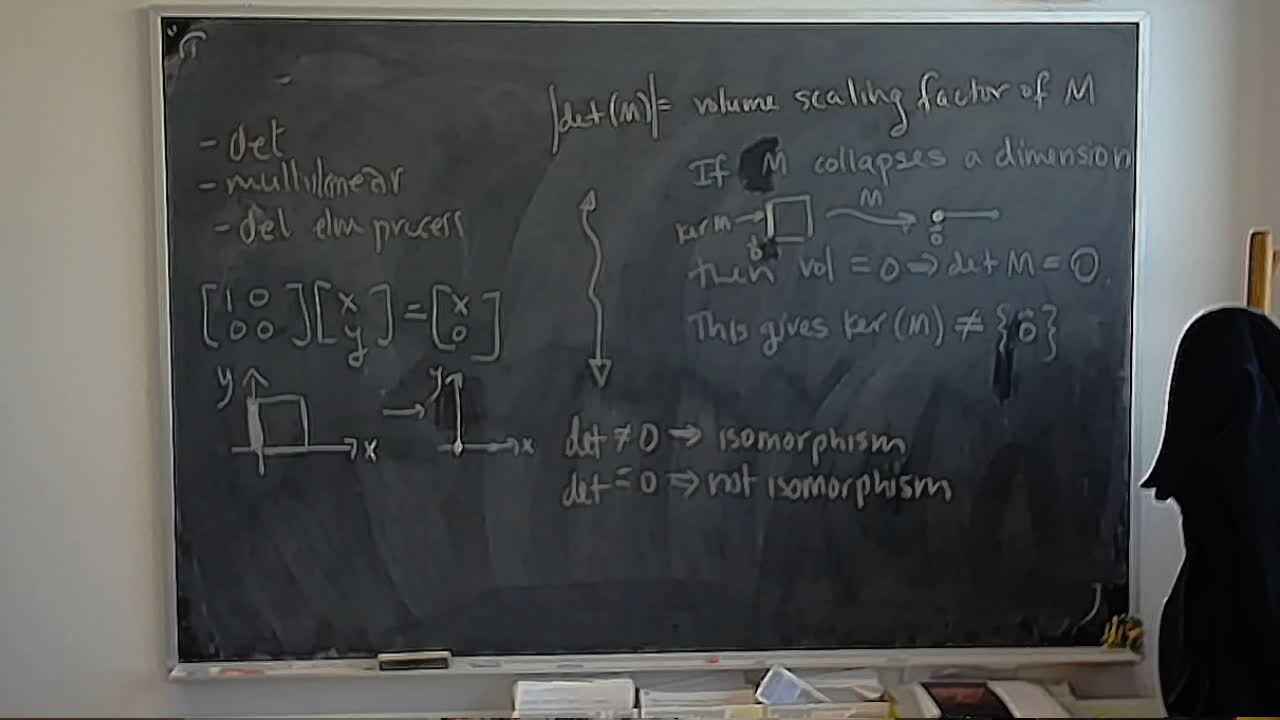 - det
- multilinear
- det elm process
[1 0
0 0] [x
y] = [x
0]
y x → y x
|det(M)| = volume scaling factor of M
If M collapses a dimension
ker M → M
0
then vol = 0 ⇒ det M = 0.
This gives ker(M) ≠ {0}
det ≠ 0 ⇒ isomorphism
det = 0 ⇒ not isomorphism